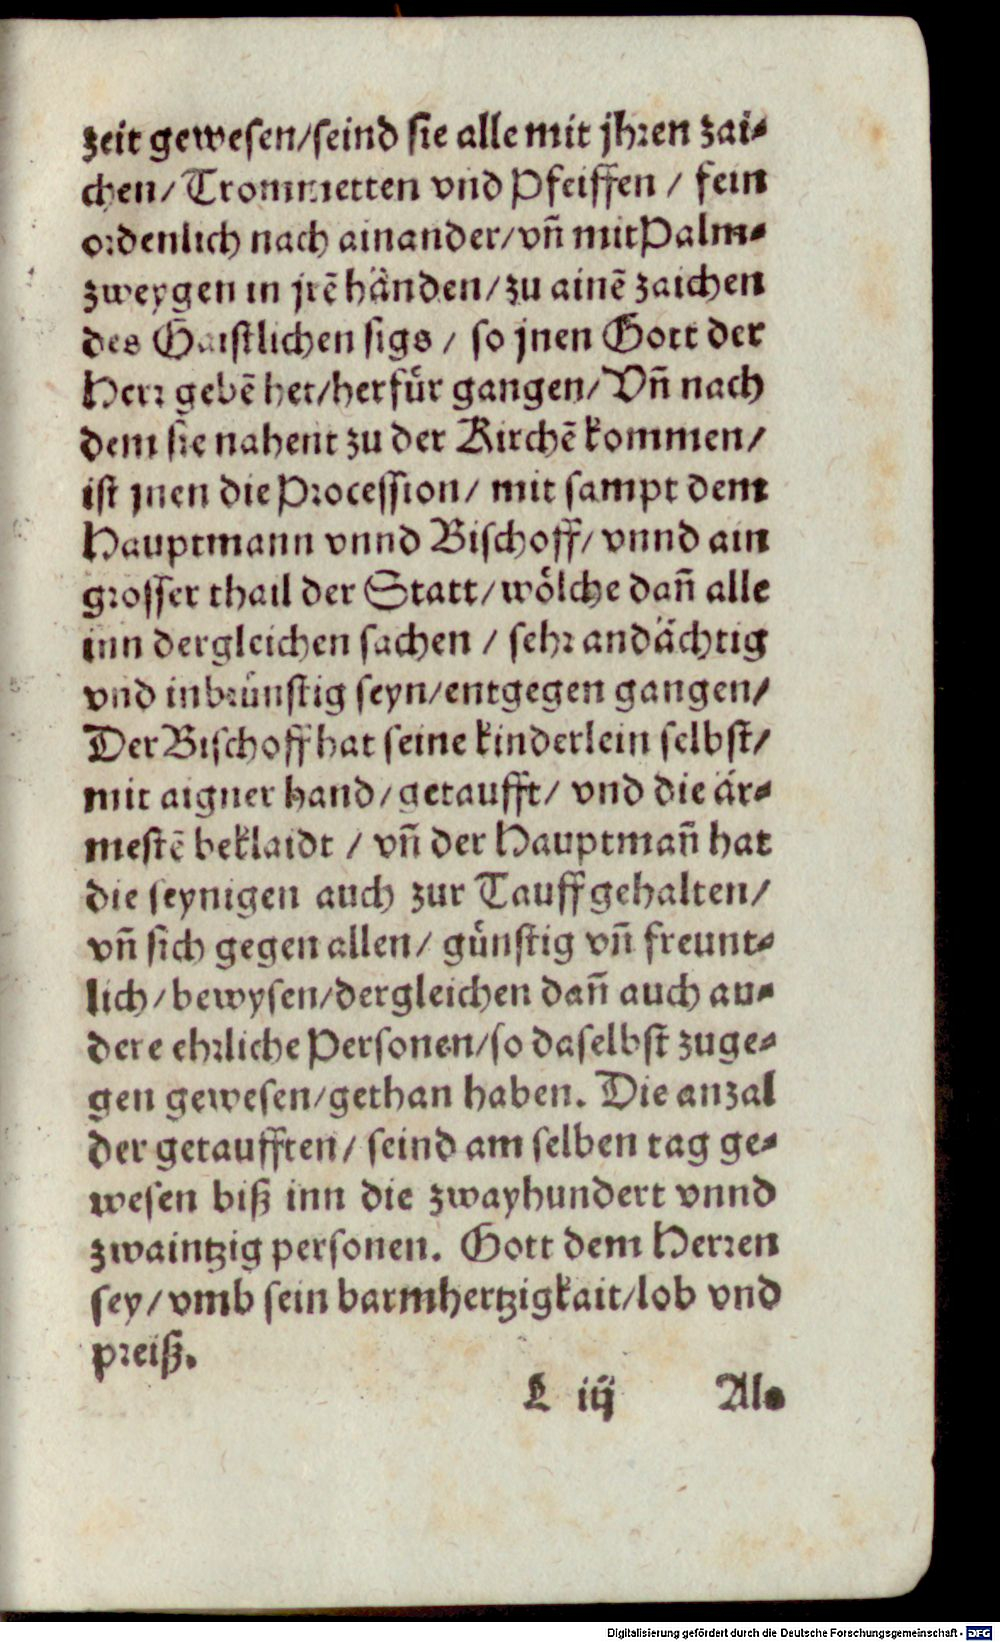 zeit gewesen/seind sie alle mit jhren zai-
chen/ Trommetten vnd Pfeiffen / fein
ordenlich nach ainander/vn̄ mit Palm-
zweygen in jrē händen/zu ainē zaichen
des Gaistlichen sigs / so jnen Gott der
Herr gebē het/herfür gangen/Vn̄ nach
dem sie nahent zu der Kirchē kommen/
ist jnen die Procession/ mit sampt dem
Hauptmann vnnd Bischoff/ vnnd ain
grosser thail der Statt/wölche dan̄ alle
inn dergleichen sachen / sehr andächtig
vnd inbrünstig seyn/entgegen gangen/
Der Bischoff hat seine kinderlein selbst/
mit aigner hand/getaufft/ vnd die är-
mestē beklaidt / vn̄ der Hauptman̄ hat
die seynigen auch zur Tauff gehalten/
vn̄ sich gegen allen/ günstig vn̄ freunt-
lich/bewysen/dergleichen dan̄ auch an-
dere ehrliche Personen/so daselbst zuge-
gen gewesen/gethan haben. Die anzal
der getaufften/ seind am selben tag ge-
wesen biß inn die zwayhundert vnnd
zwaintzig personen. Gott dem Herren
sey/vmb sein barmhertzigkait/lob vnd
preiß.
L iij Al-
Digitalisierung gefördert durch die Deutsche Forschungsgemeinschaft - DFG